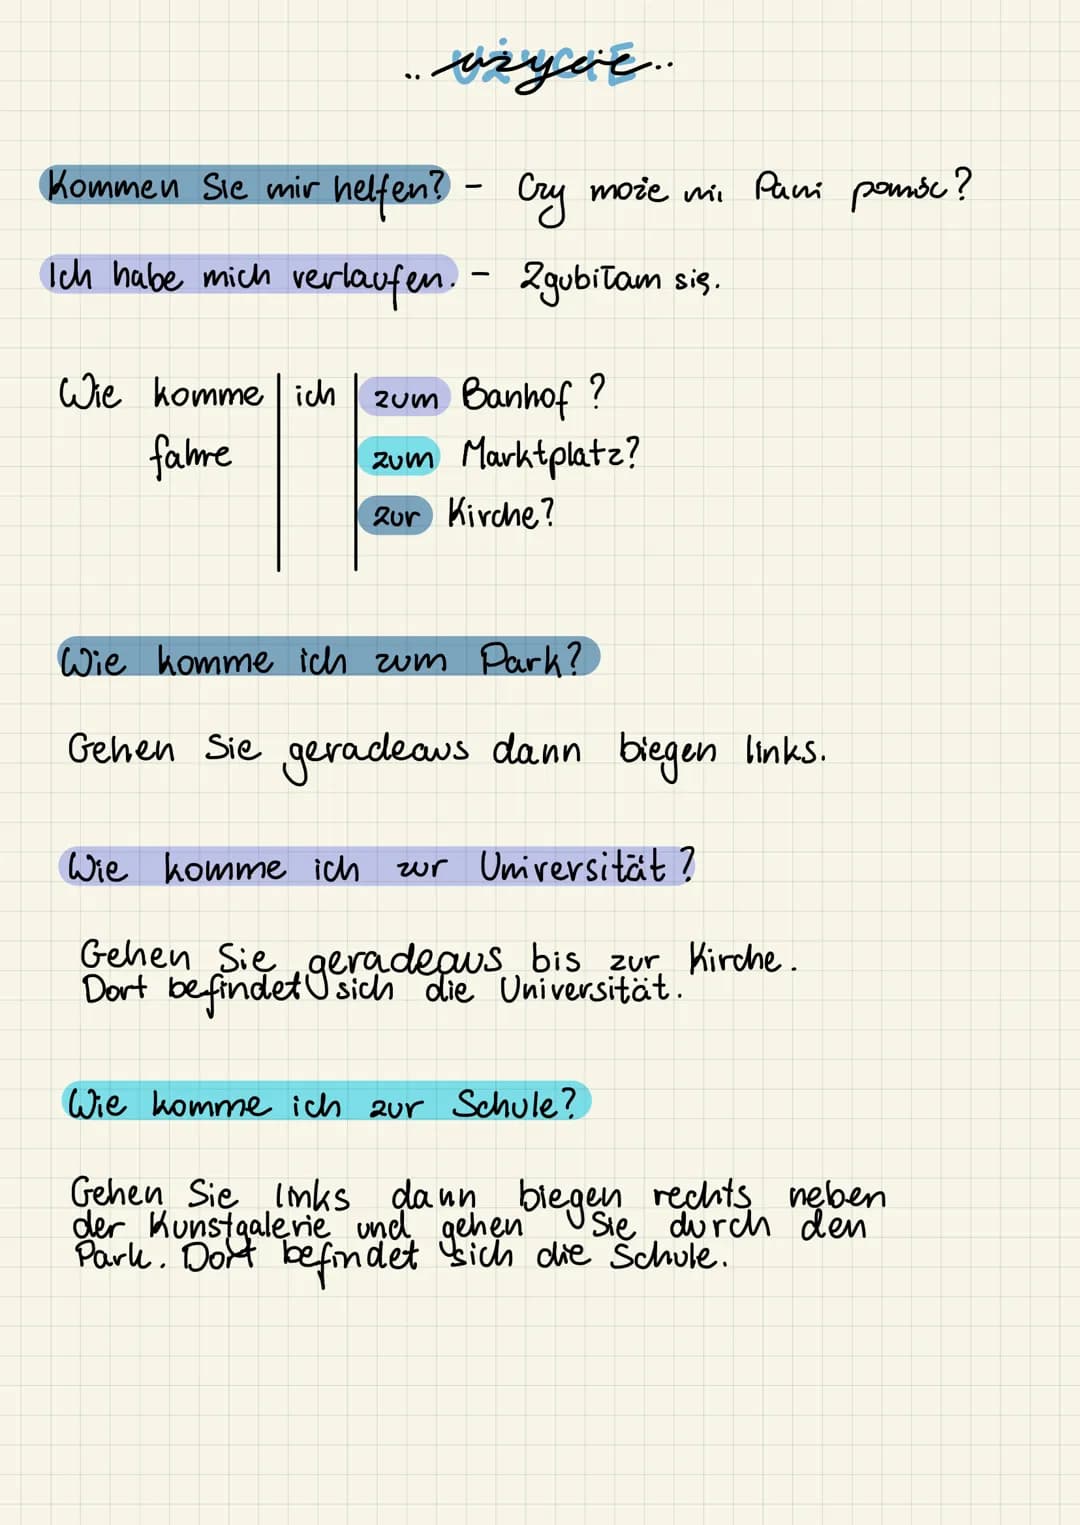 .. użycie ..
Kommen Sie mir helfen? - Czy może mi Pani pomóc?
Ich habe mich verlaufen. - Zgubiłam się.
Wie komme ich zum Banhof?
fahre zum Marktplatz?
zur Kirche?
Wie komme ich zum Park?
Gehen Sie geradeaus dann biegen links.
Wie komme ich zur Universität?
Gehen Sie geradeaus bis zur Kirche.
Dort befindet sich die Universität.
Wie komme ich zur Schule?
Gehen Sie links dann biegen rechts neben
der Kunstgalerie und gehen Sie durch den
Park. Dort befindet sich die Schule.